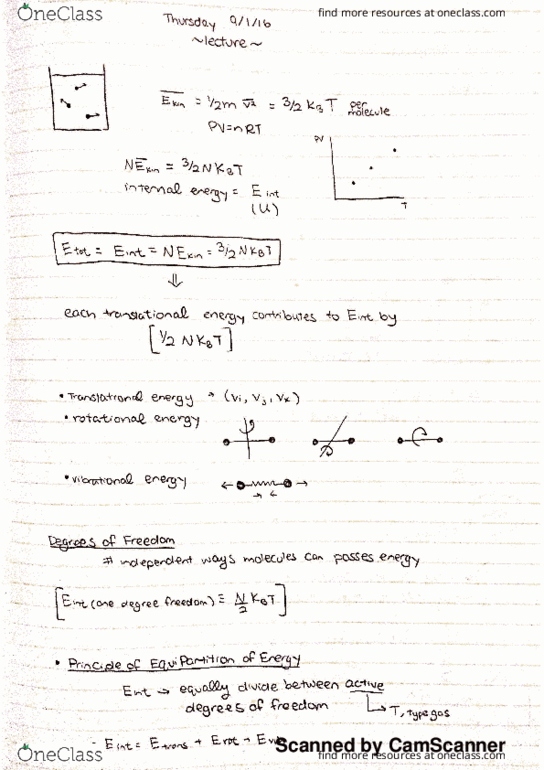 OneClass
find more resources at oneclass.com
Thursday 9/1/16
~lecture~
E̅kin = 1/2 m v̅² = 3/2 KBT per molecule
PV=nRT
PV
T
NE̅kin = 3/2 N KBT
internal energy = Eint
(U)
Etot = Eint = NEkin = 3/2 NKBT
⇓
each translational energy contributes to Eint by
[1/2 NKBT]
• Translational energy → (vi, vj, vk)
• rotational energy
• vibrational energy
Degrees of Freedom
# independent ways molecules can posses energy
[Eint (one degree freedom) = N/2 KBT]
• Principle of EquiPartition of Energy
Eint → equally divide between active
degrees of freedom
↳ T, type gas
- Eint = Etrans + Erot +
Scanned by CamScanner
OneClass
find more resources at oneclass.com